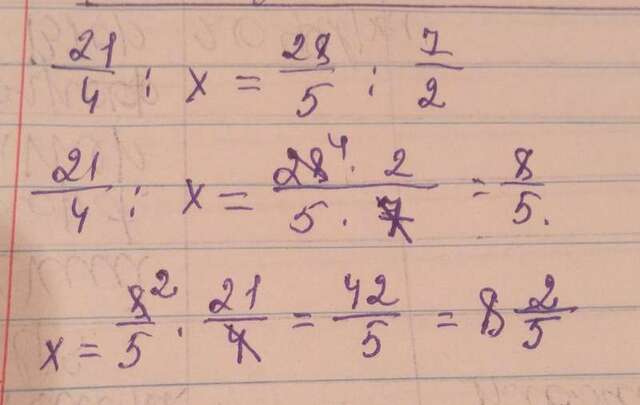 21/4 : x = 28/5 : 7/2
21/4 : x = 28⁴ · 2 / 5 · 7 = 8/5.
x = 8²/5 · 21/4 = 42/5 = 8 2/5